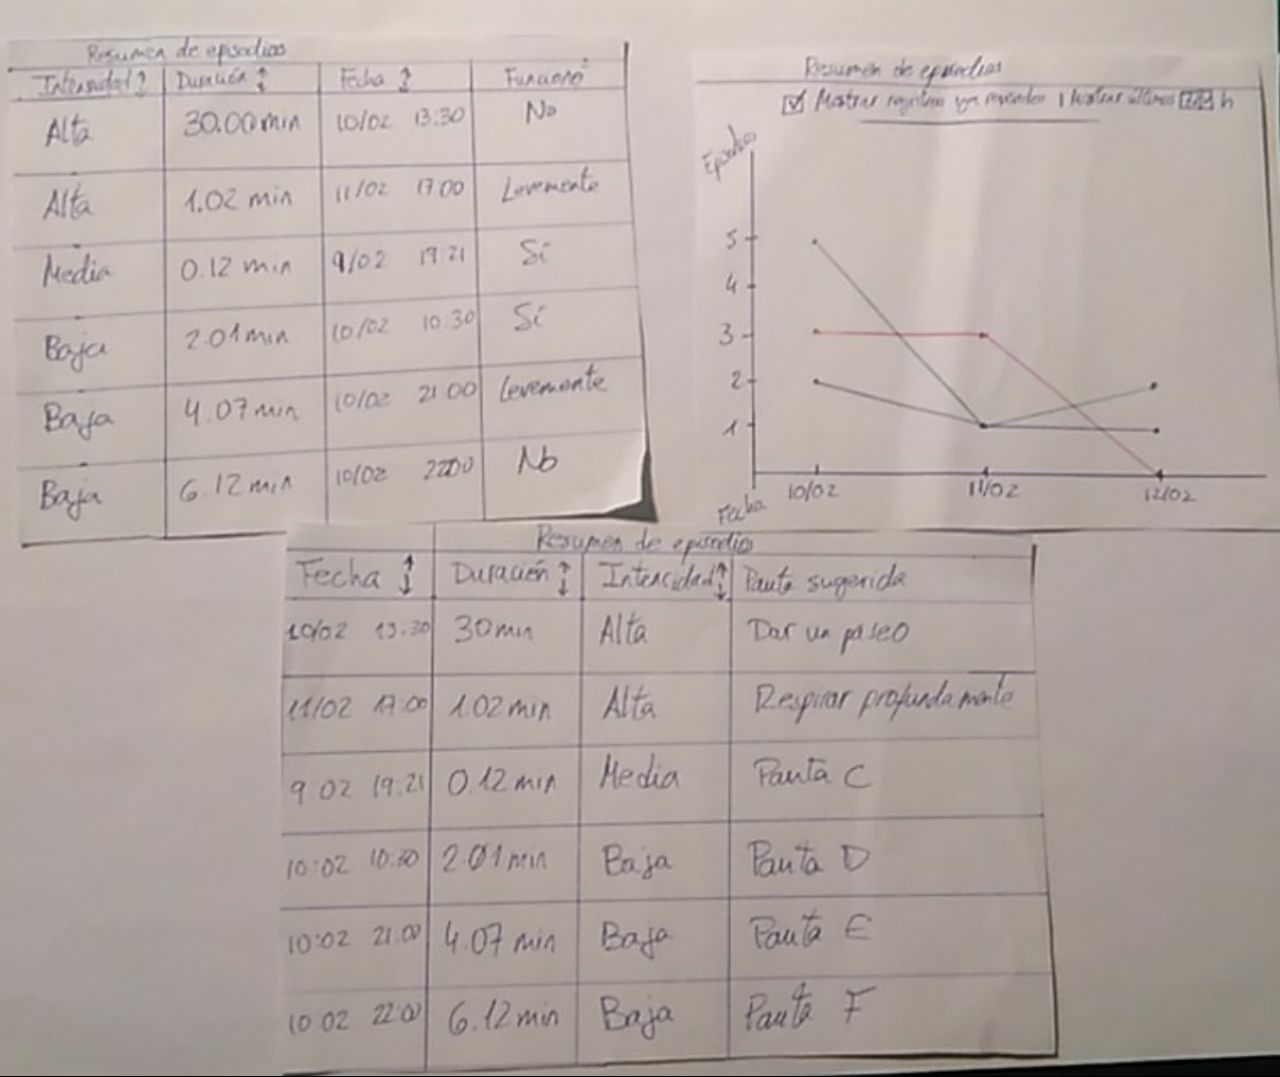 Resumen de episodios
Intensidad ↑ Duración ↕ Fecha ↕ Funcionó
Alta 30.00 min 10/02 13:30 No
Alta 1.02 min 11/02 17:00 Levemente
Media 0.12 min 9/02 19:21 Sí
Baja 2.01 min 10/02 10:30 Sí
Baja 4.07 min 10/02 21:00 Levemente
Baja 6.12 min 10/02 22:00 No
Resumen de episodios
Mostrar registros ya | Mostrar últimos h
Episodios
5
4
3
2
1
10/02 11/02 12/02
Fecha
Resumen de episodios
Fecha ↕ Duración ↕ Intencidad ↕ Pauta sugerida
10/02 13:30 30 min Alta Dar un paseo
11/02 17:00 1.02 min Alta Respirar profundamente
9 02 19:21 0.12 min Media Pauta C
10:02 10:30 2.01 min Baja Pauta D
10:02 21:00 4.07 min Baja Pauta E
10 02 22:00 6.12 min Baja Pauta F